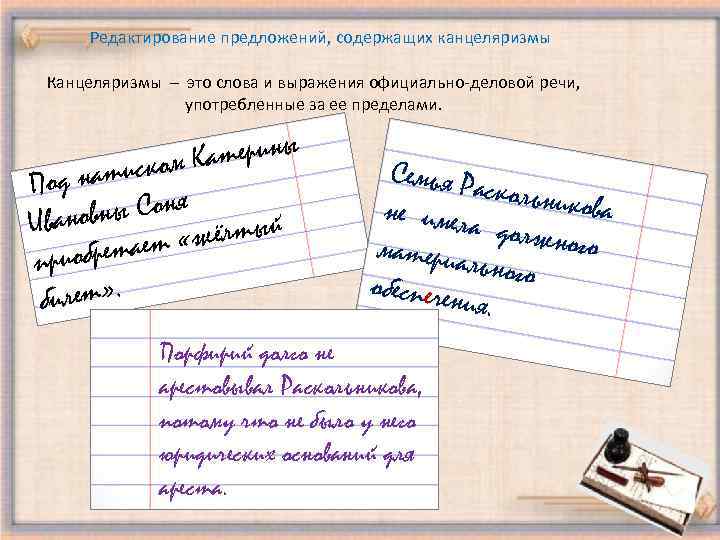 Редактирование предложений, содержащих канцеляризмы
Канцеляризмы – это слова и выражения официально-деловой речи,
употребленные за ее пределами.
Под натиском Катерины
Ивановны Соня
приобретает «жёлтый
билет».
Семья Раскольникова
не имела должного
материального
обеспечения.
Порфирий долго не
арестовывал Раскольникова,
потому что не было у него
юридических оснований для
ареста.